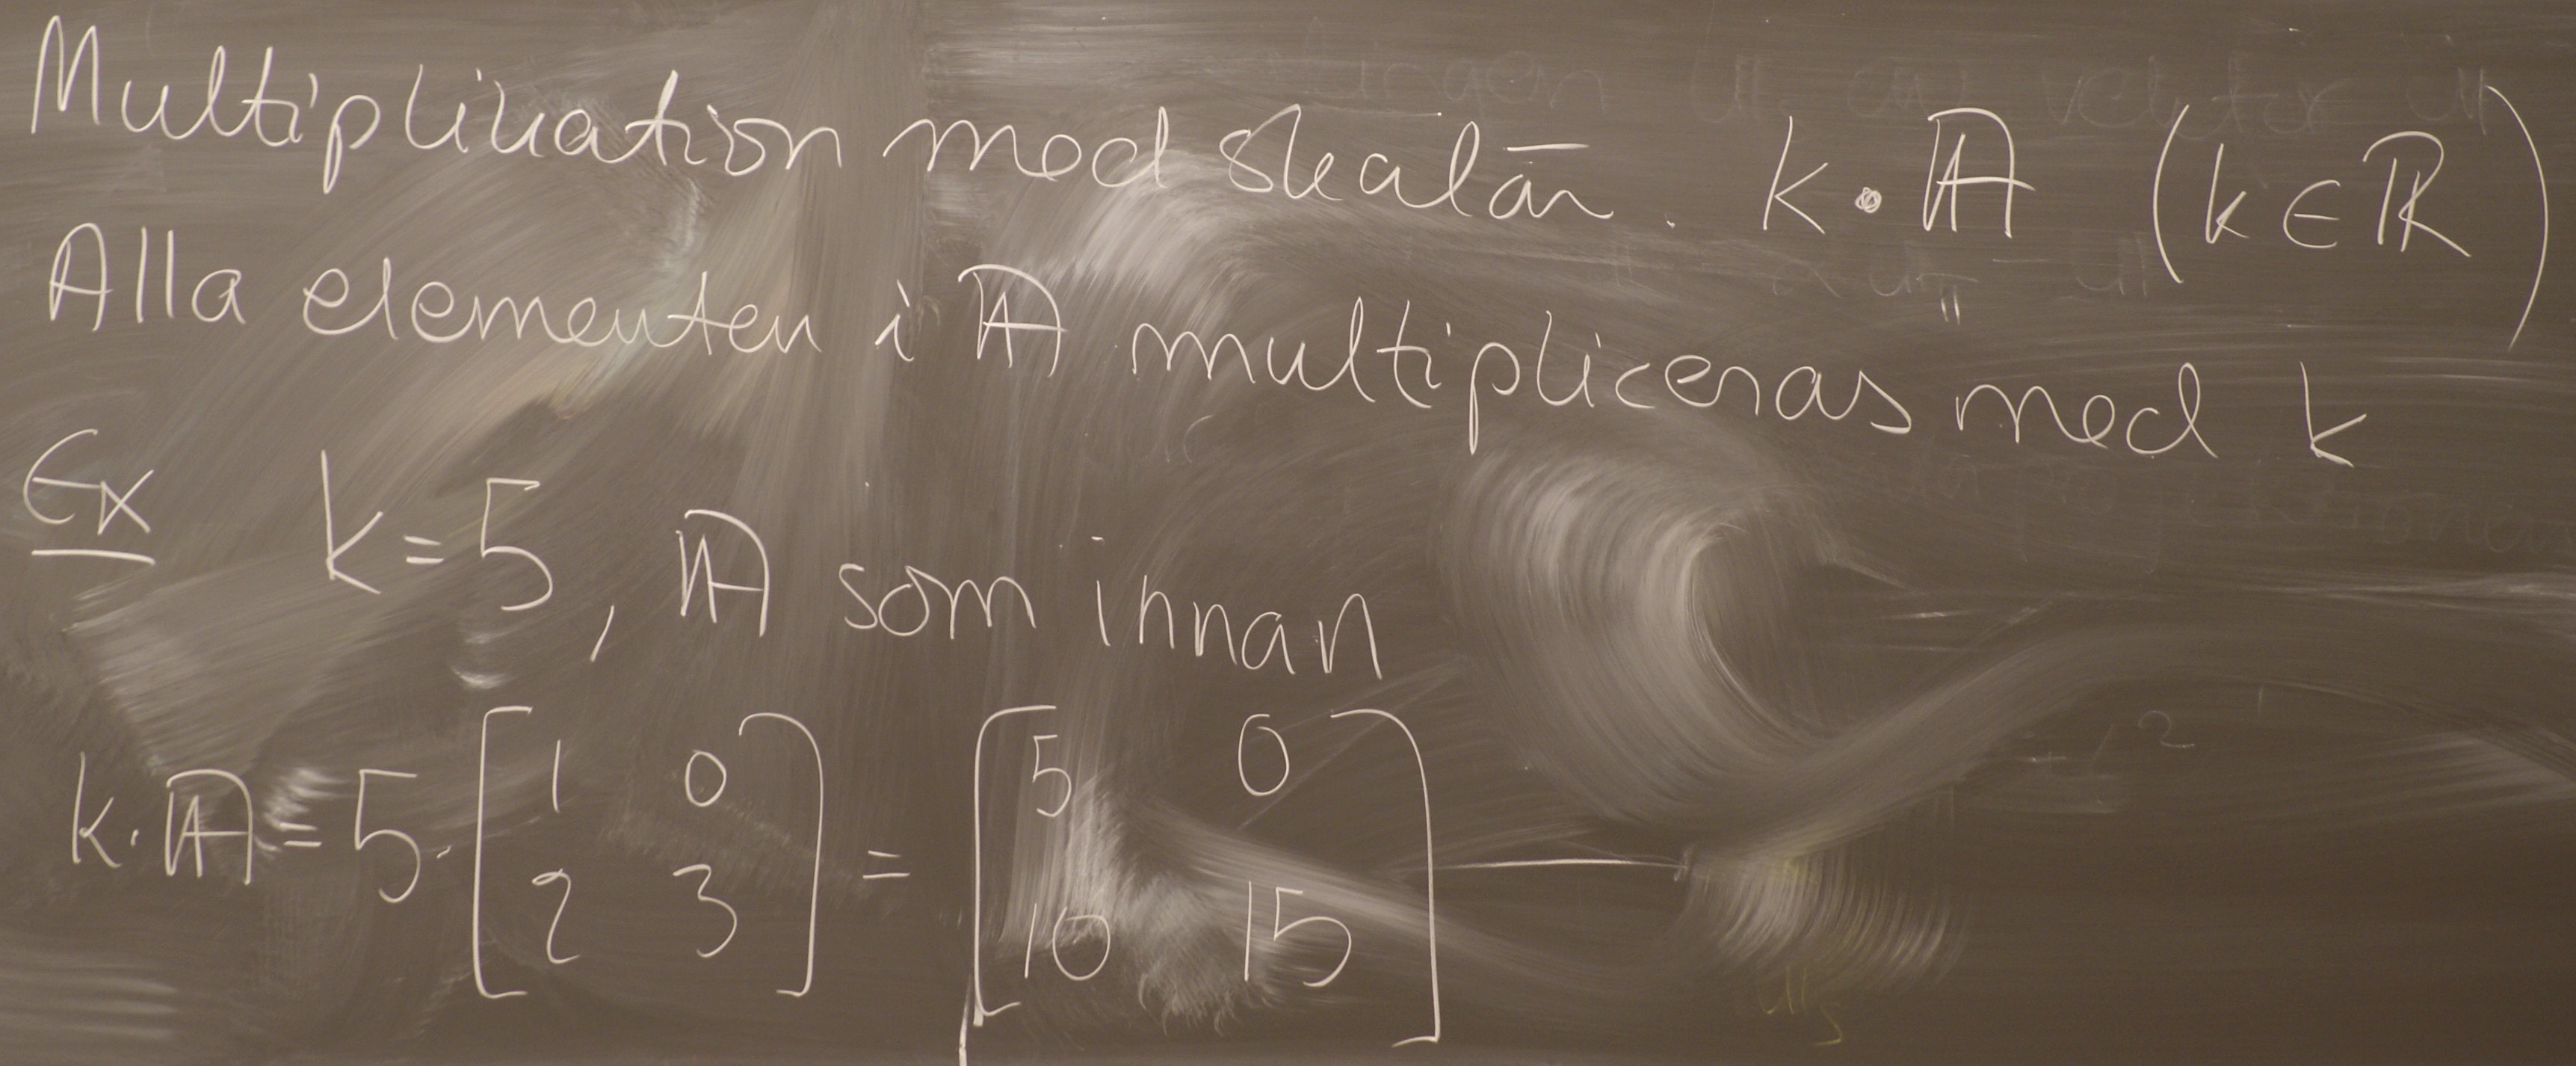 Multiplikation med skalär. k·𝔸 (k∈ℝ)
Alla elementen i 𝔸 multipliceras med k
Ex k=5, 𝔸 som innan
k·𝔸=5·[1 0
2 3] = [5 0
10 15]